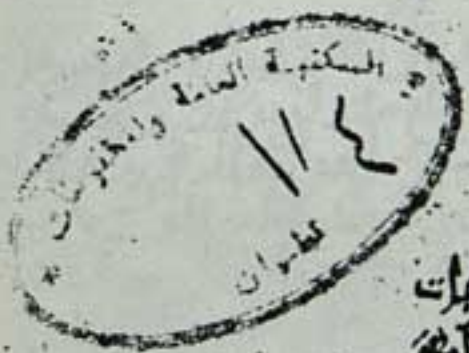 المكتبة العامة والمحفوظات
١١٤
تطوان